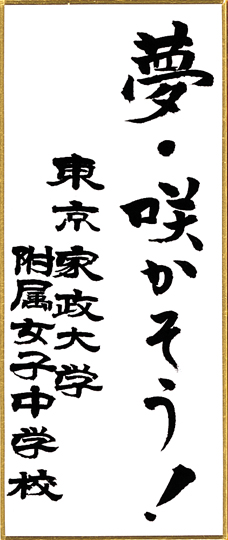 夢・咲かそう！
東京家政大学
附属女子中学校